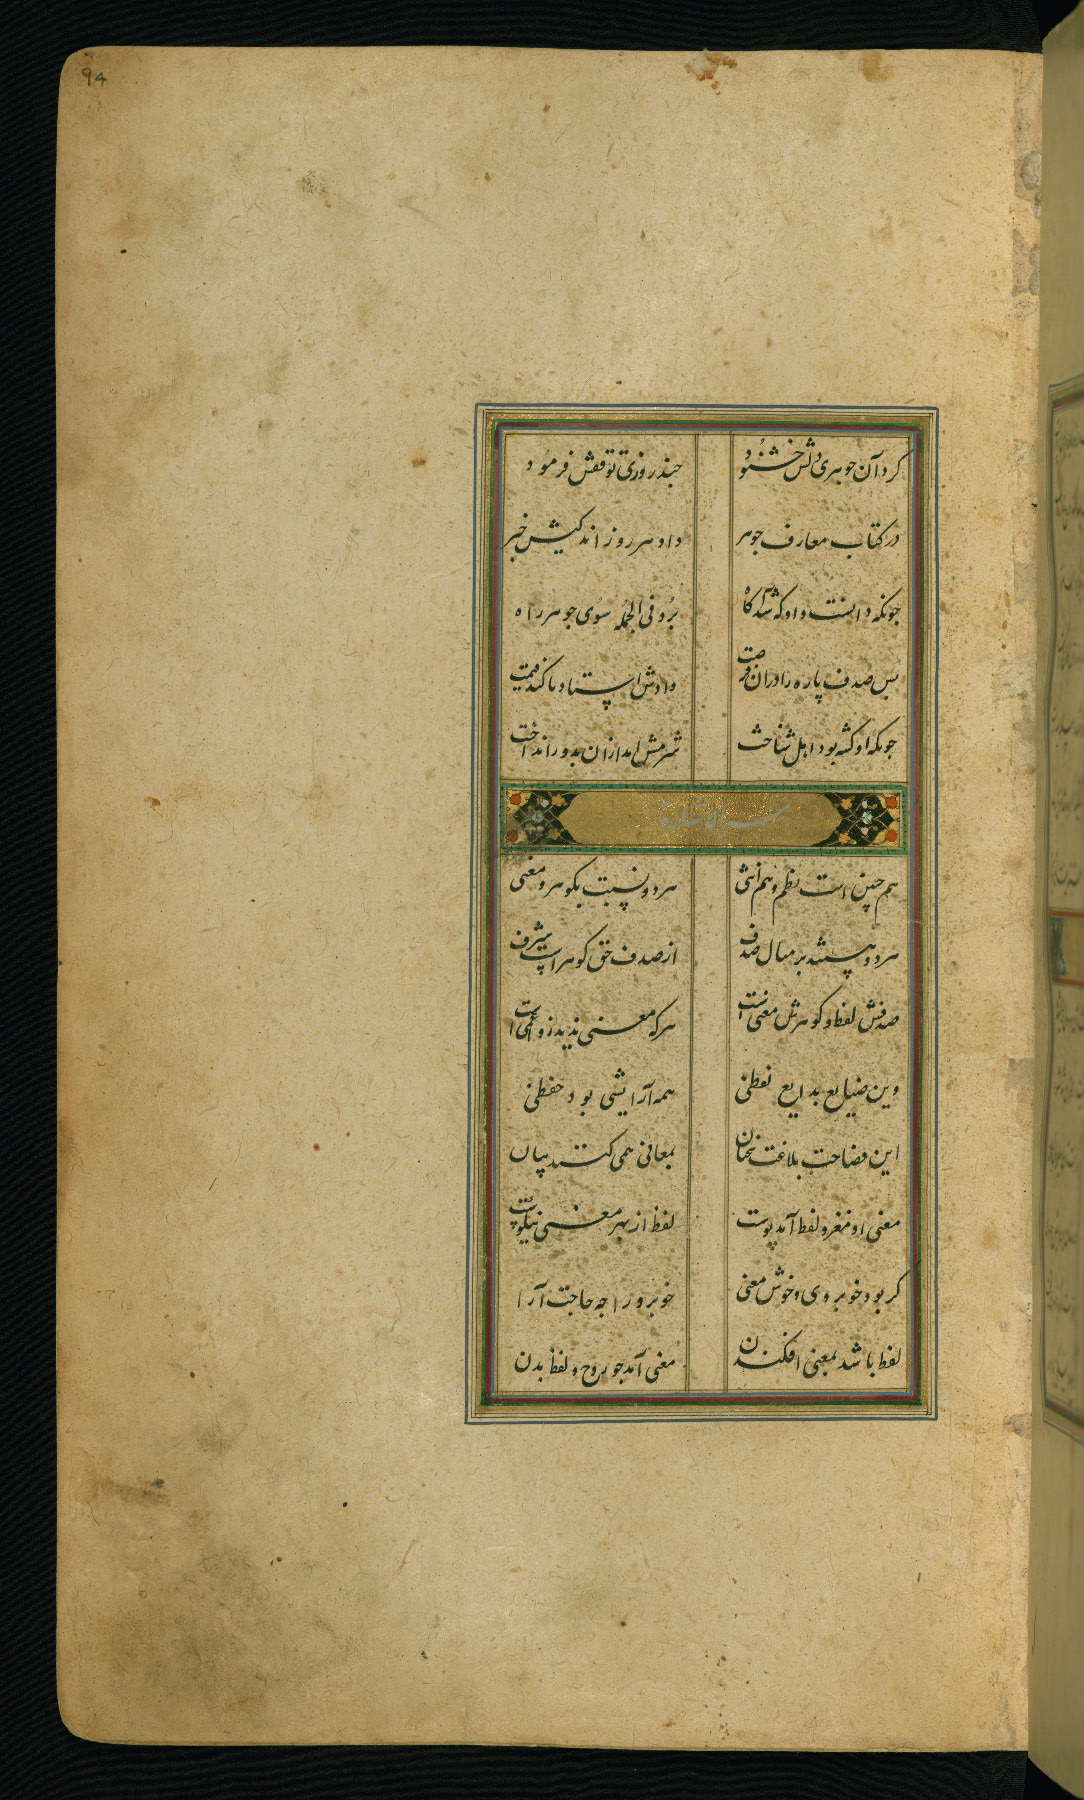 94
کرد آن جوهری دلش خشنود چند روزی توقفش فرمود
در کتاب معارف جوهر داد هر روز اندکیش خبر
چونکه دانست و او که شد آگاه برد فی الجمله سوی جوهر راه
پس صدف پاره را در آن فرصت دادش استاد تا کند قیمت
چونکه او گشته بود اهل شناخت شرمش امد از ان بدور انداخت
سر الاشارة
هم چنین است نظم و هم انشی هر دو نسبت بگوهر و معنی
هر دو هستند بر مثال صدف از صدف حق گوهر است شرف
صدفش لفظ و گوهرش معنی است هر که معنی ندید زو اعمی است
وین صنایع بدایع لفظی همه آرایشی بود حفظی
این فصاحت بلاغت سخنان بمعانی همی کنند بیان
معنی او مغز و لفظ آمد پوست لفظ از بهر معنی نیکوست
گر بود خوبروی و خوش معنی خوبرو را چه حاجت آرا
لفظ باشد بمعنی افکندن معنی آمد چو روح و لفظ بدن